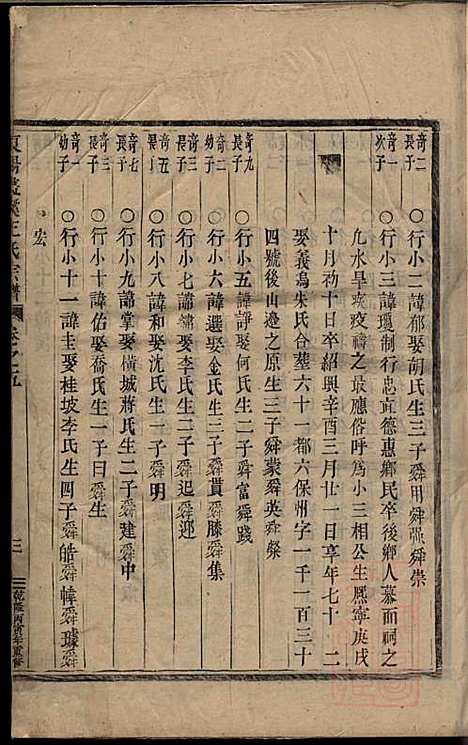 奇二長子○行小二諱郁娶胡氏生三子舜用舜弼舜崇
奇一次子○行小三諱瓊制行忠直德惠鄉民卒後鄉人慕而祠之
凡水旱灾疫禱之最應俗呼為小三相公生熙寧庚戌
十月初十日卒紹興辛酉三月廿一日享年七十二
娶義烏朱氏合塟六十一都六保州字一千一百三十
四號後山邊之原生三子舜蒙舜英舜榮
奇九長子○行小五諱諍娶何氏生二子舜富舜踐
奇二幼子○行小六諱選娶金氏生三子舜貫舜滕舜集
奇三長子○行小七諱鏽娶李氏生二子舜起舜迎
奇五○行小八諱和娶沈氏生一子舜明
奇七長子○行小九諱掌娶橫城蔣氏生二子舜建舜中
奇三長子○行小十諱佑娶喬氏生一子曰舜生
奇一幼子○行小十一諱圭娶桂坡李氏生四子舜皓舜幃舜璩舜
宏
王氏宗譜 卷之五 三 乾隆丙寅年重修